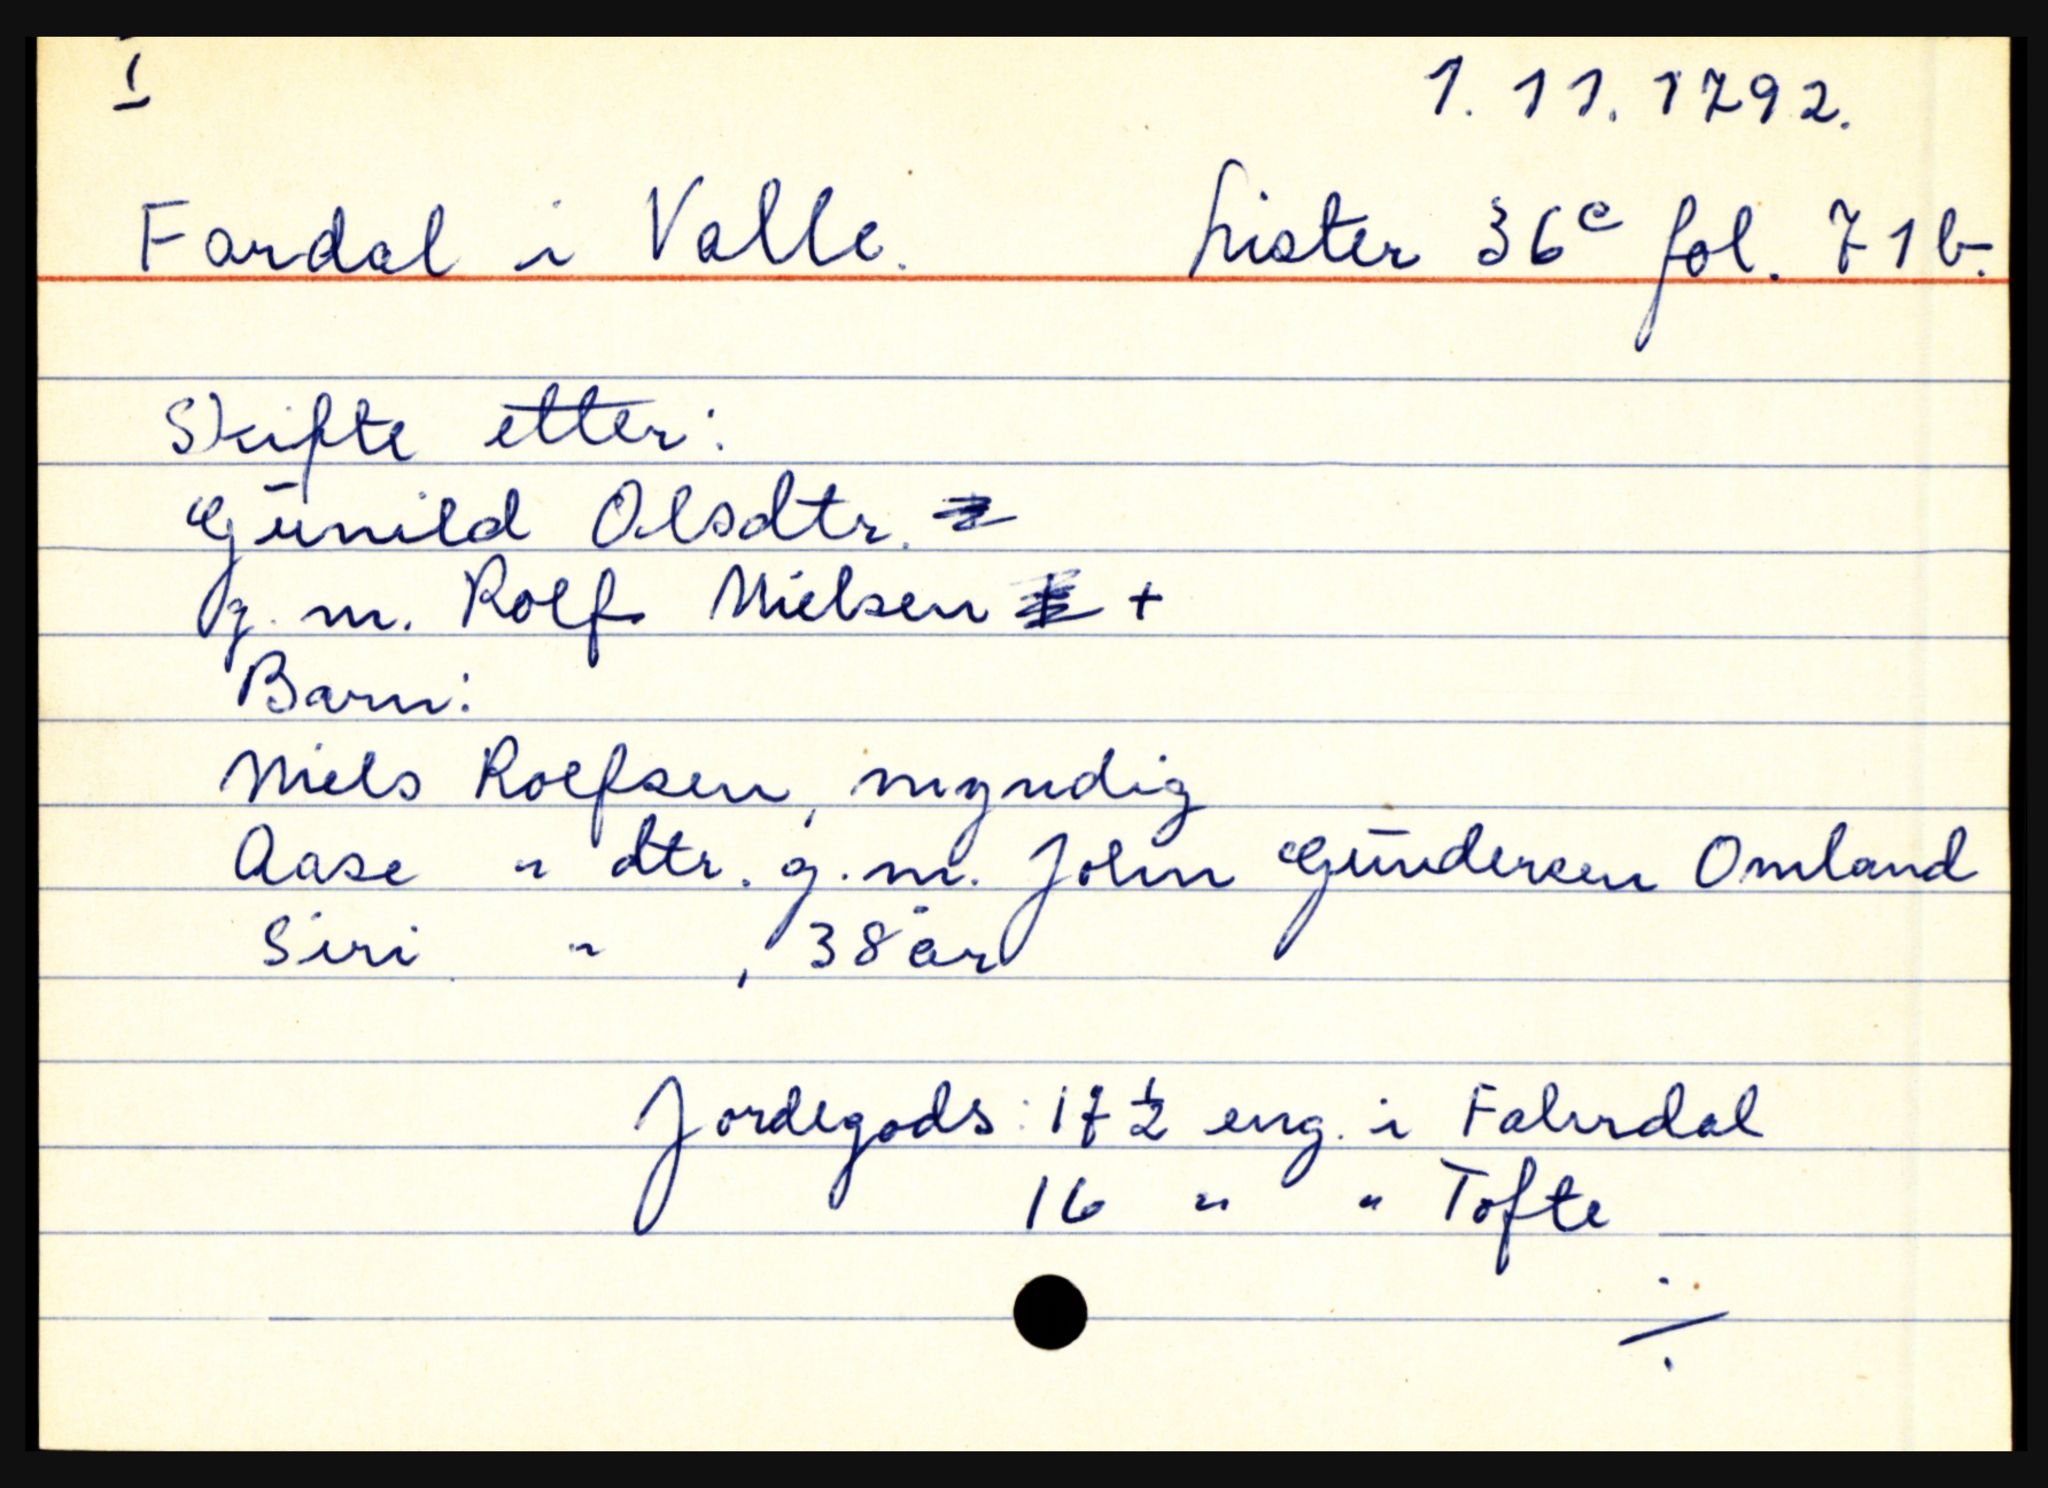 I
1. 11. 1792.
Fardal i Valle. Lister 36c fol. 71b.
Skifte etter:
Gunild Olsdtr.
g. m. Rolf Nielsen +
Barn:
Niels Rolfsen, myndig
Aase " dtr. g. m. John Gundersen Omland
Siri " , 38 år
Jordegods: 17 1/2 eng. i Fahrdal
16 " " Tofte